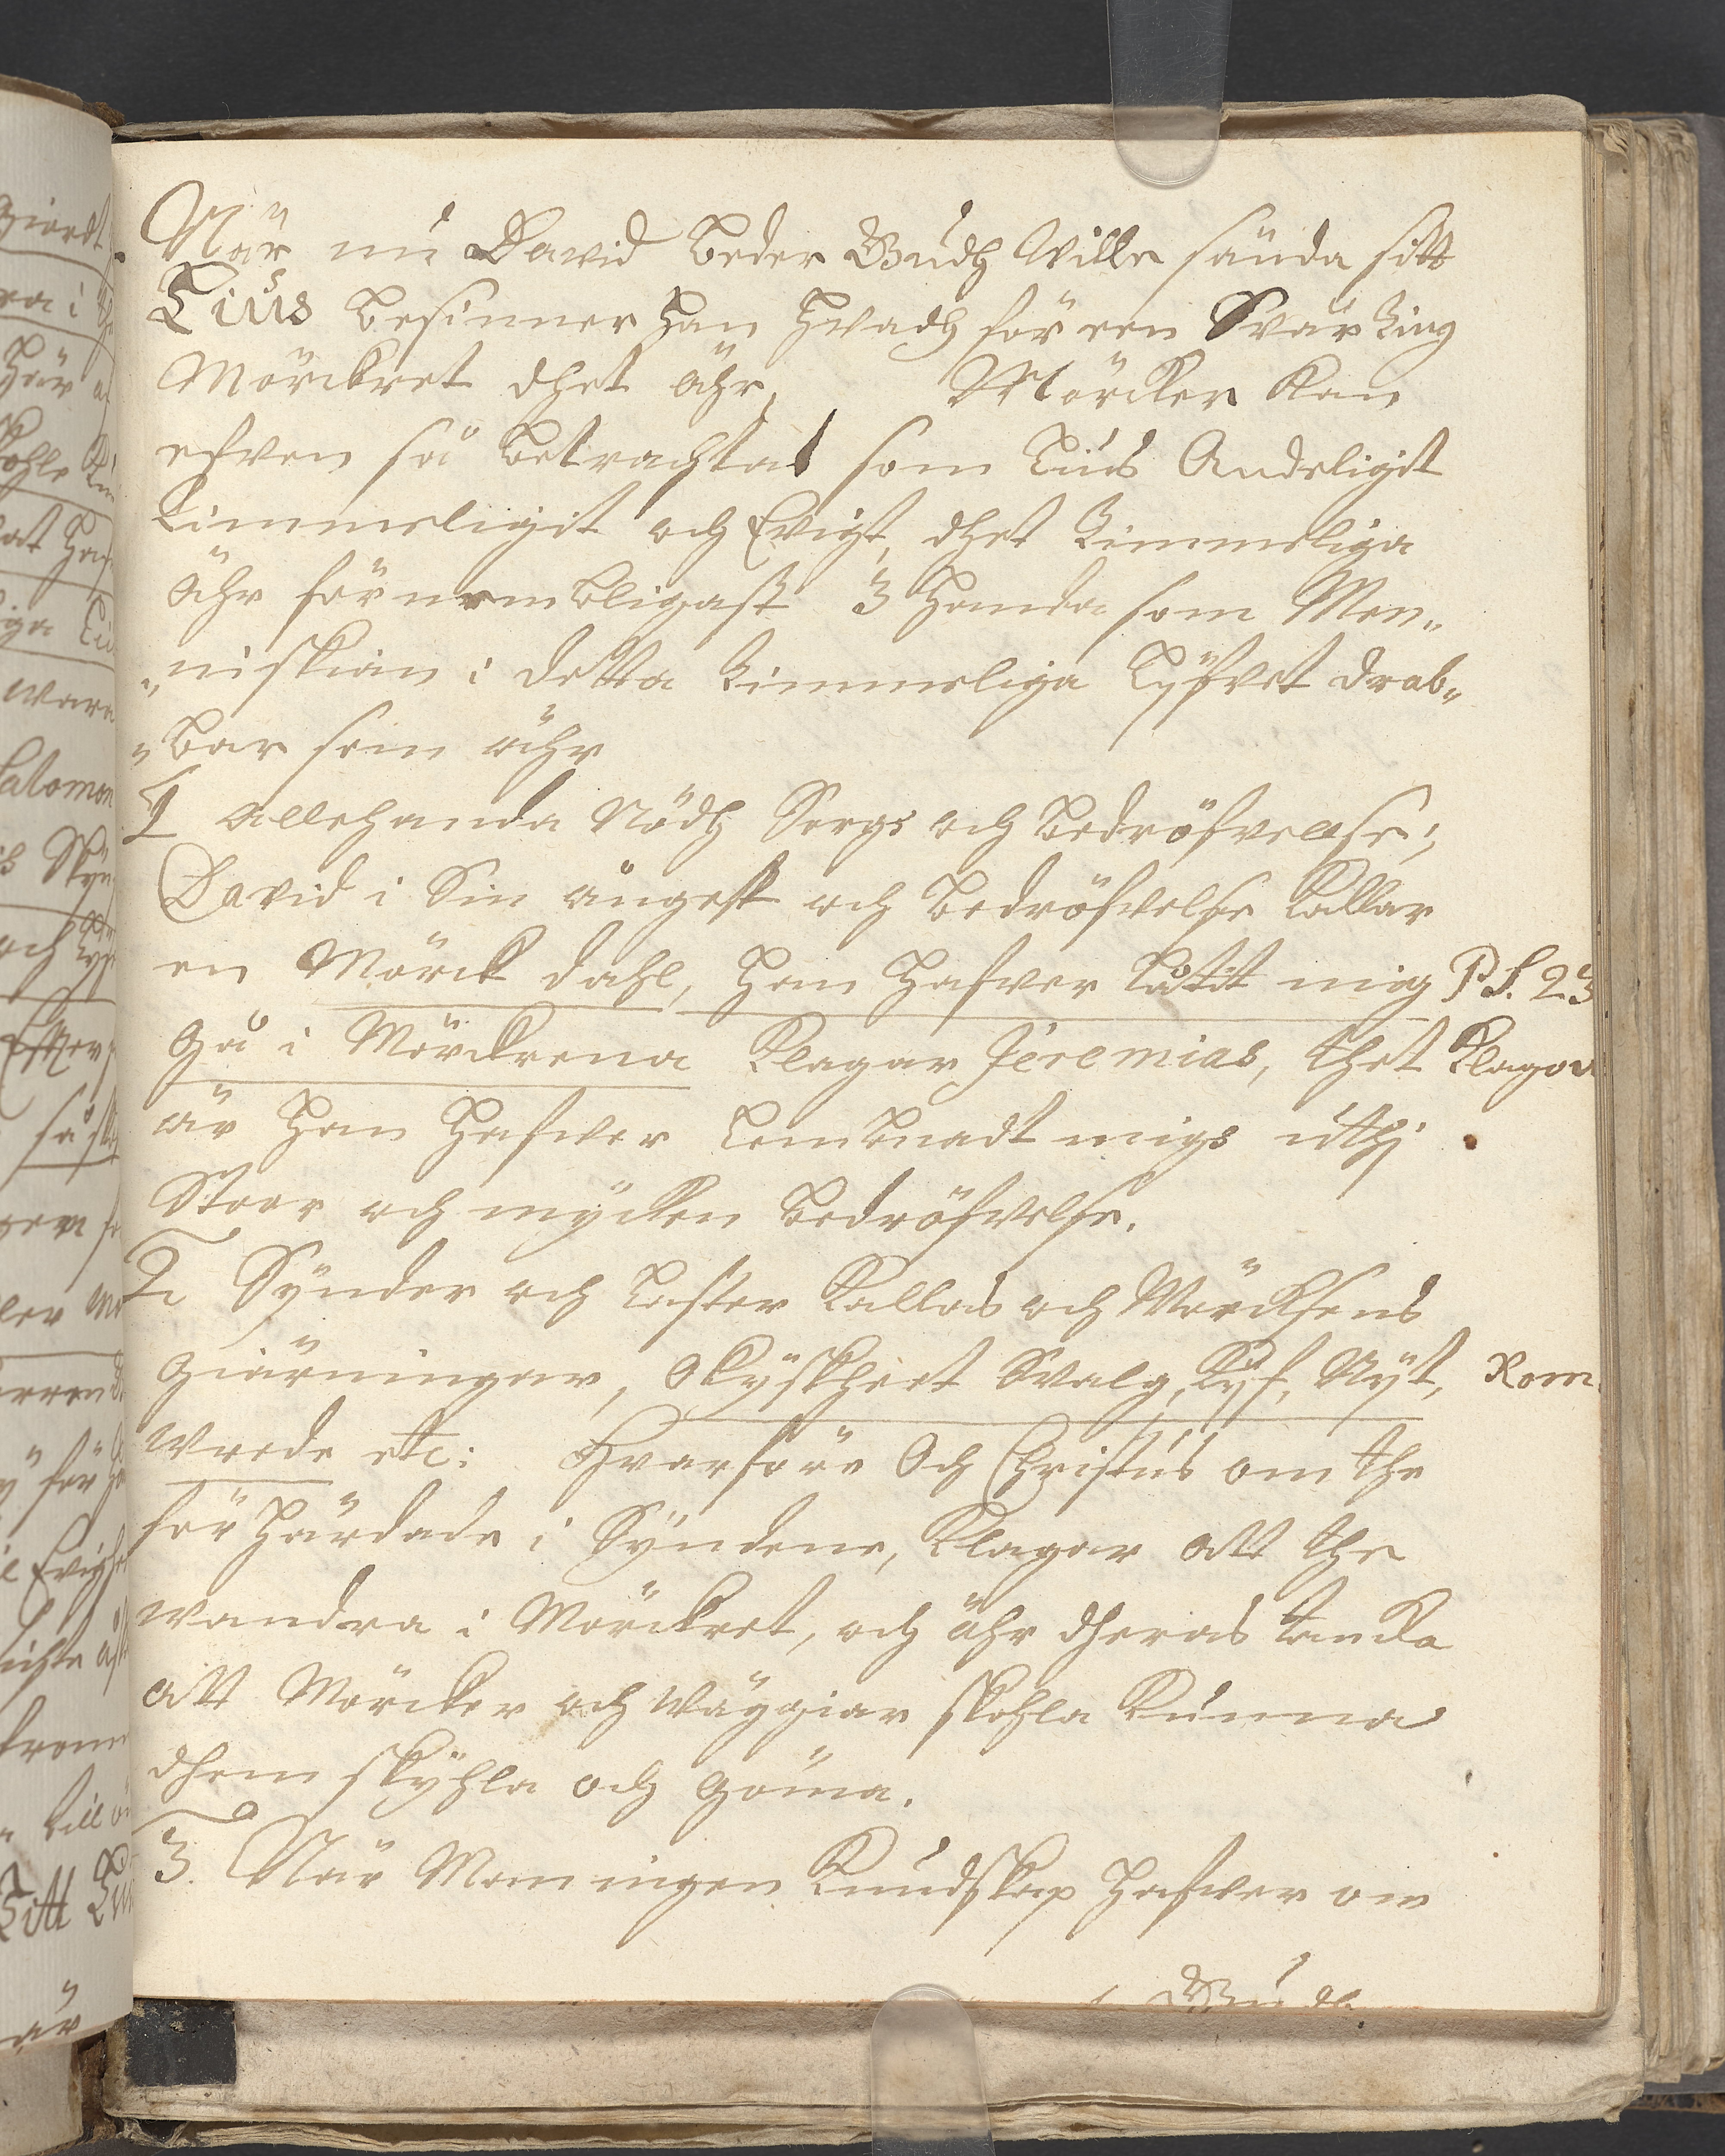 När nu David beder Gudh wille sända sitt
Lius besinner han hwadh för een Swår ting
Mörckret dhet ähr, Mörcker kan
efwen så betrachtas som Lius Andeligit
timmeligit och Ewigt, dhet timmeliga
ähr förnembligast 3 handa som Men„
„niskian i detta timmeliga Lyfwet drab„
„bar som ähr
1 allehanda Nödh Sorgs och bedröfwelse;
David i Sin ångest och bedröfwelse kallar
en Mörck dahl, han hafwer låtit mig PS. 23
gå i Mörckrena klagar Jeremias, thet Klagow
är han hafwer lembnadt migs uthj
Stoor och mycken bedröfwelse.
2 Synder och laster kallas och Mörcksens
giärningar, Okyskheet Swalg, kijf, Nijt, Rom.
wrede etc: Hwarföre Och Christus om the
förhärdade i Syndene, klagar att the
wandra i Mörckret, och ähr dheras tancka
att Mörcker och wäggiar skohla kunna
dhem skyhla och göma.
3. När Man ingen kundskap hafwer om
Gudh